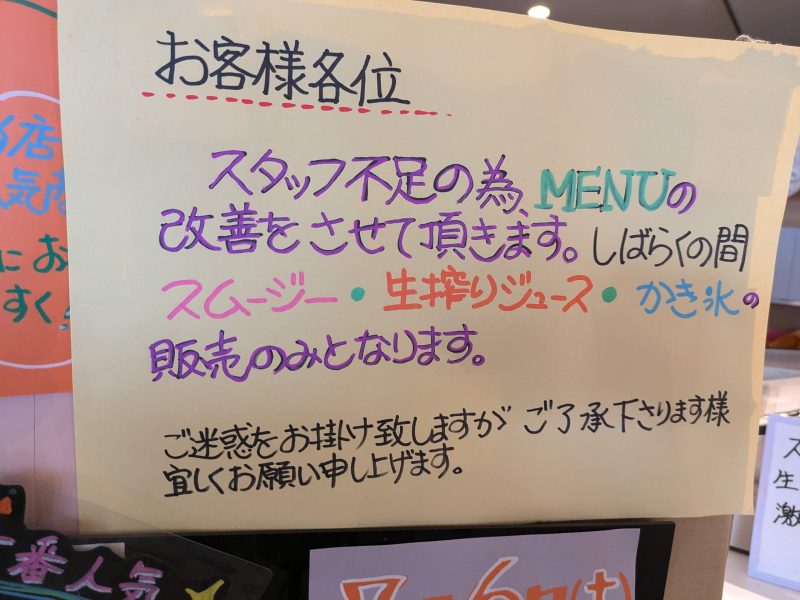 お客様各位
スタッフ不足の為、MENUの
改善をさせて頂きます。しばらくの間
スムージー・生搾りジュース・かき氷の
販売のみとなります。
ご迷惑をお掛け致しますがご了承下さります様
宜しくお願い申し上げます。
店
気
にお
すく
一番人気
ス
生
激